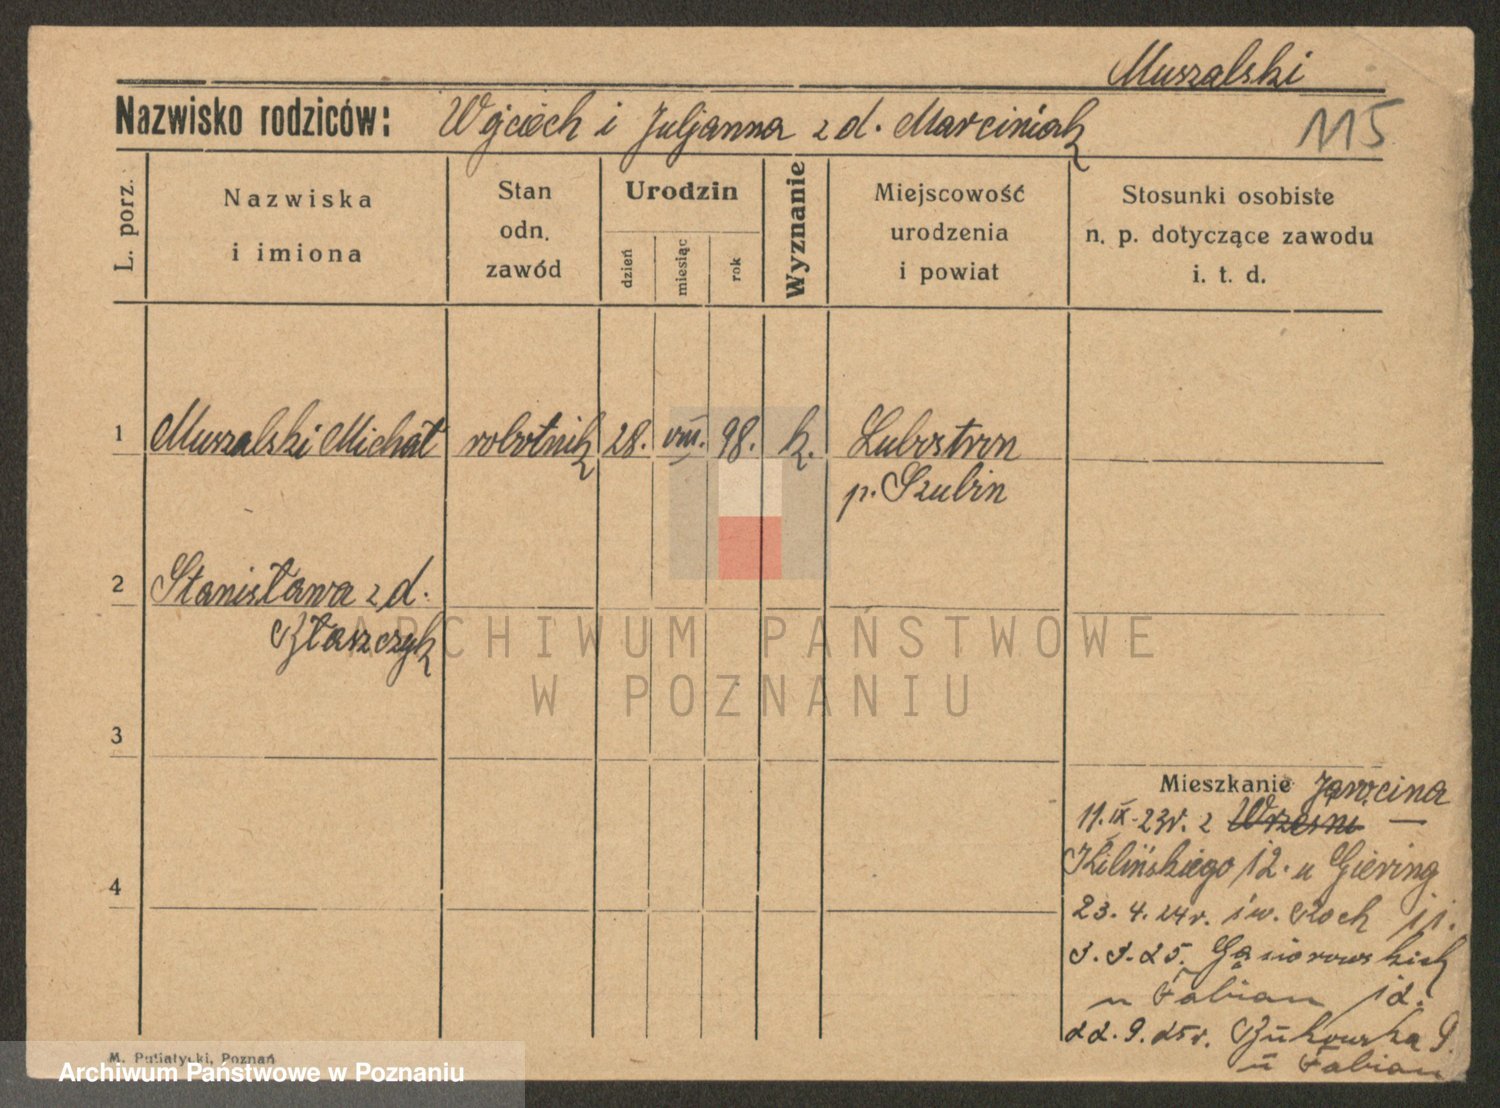 Muszalski
Nazwisko rodziców: Wojciech i Juljanna z d. Marciniak
115
L. porz.
Nazwiska
i imiona
Stan
odn.
zawód
Urodzin
dzień
miesiąc
rok
Wyznanie
Miejscowość
urodzenia
i powiat
Stosunki osobiste
n. p. dotyczące zawodu
i. t. d.
1 Muszalski Michał robotnik 28. VIII. 98. k. Lubostron
p. Szubin
2 Stanisława z d.
Błaszczyk
ARCHIWUM PAŃSTWOWE
W POZNANIU
3
Mieszkanie Jarocina
11. IX. 23r. z Wrześni —
Kilińskiego 12. u Giering
4
23. 4. 24r. św. Roch 11.
3. 3. 25. Gąsiorowskich
u Fabian 12.
22. 9. 25r. Bukowska 9
u Fabian
M. Putiatycki, Poznań
Archiwum Państwowe w Poznaniu